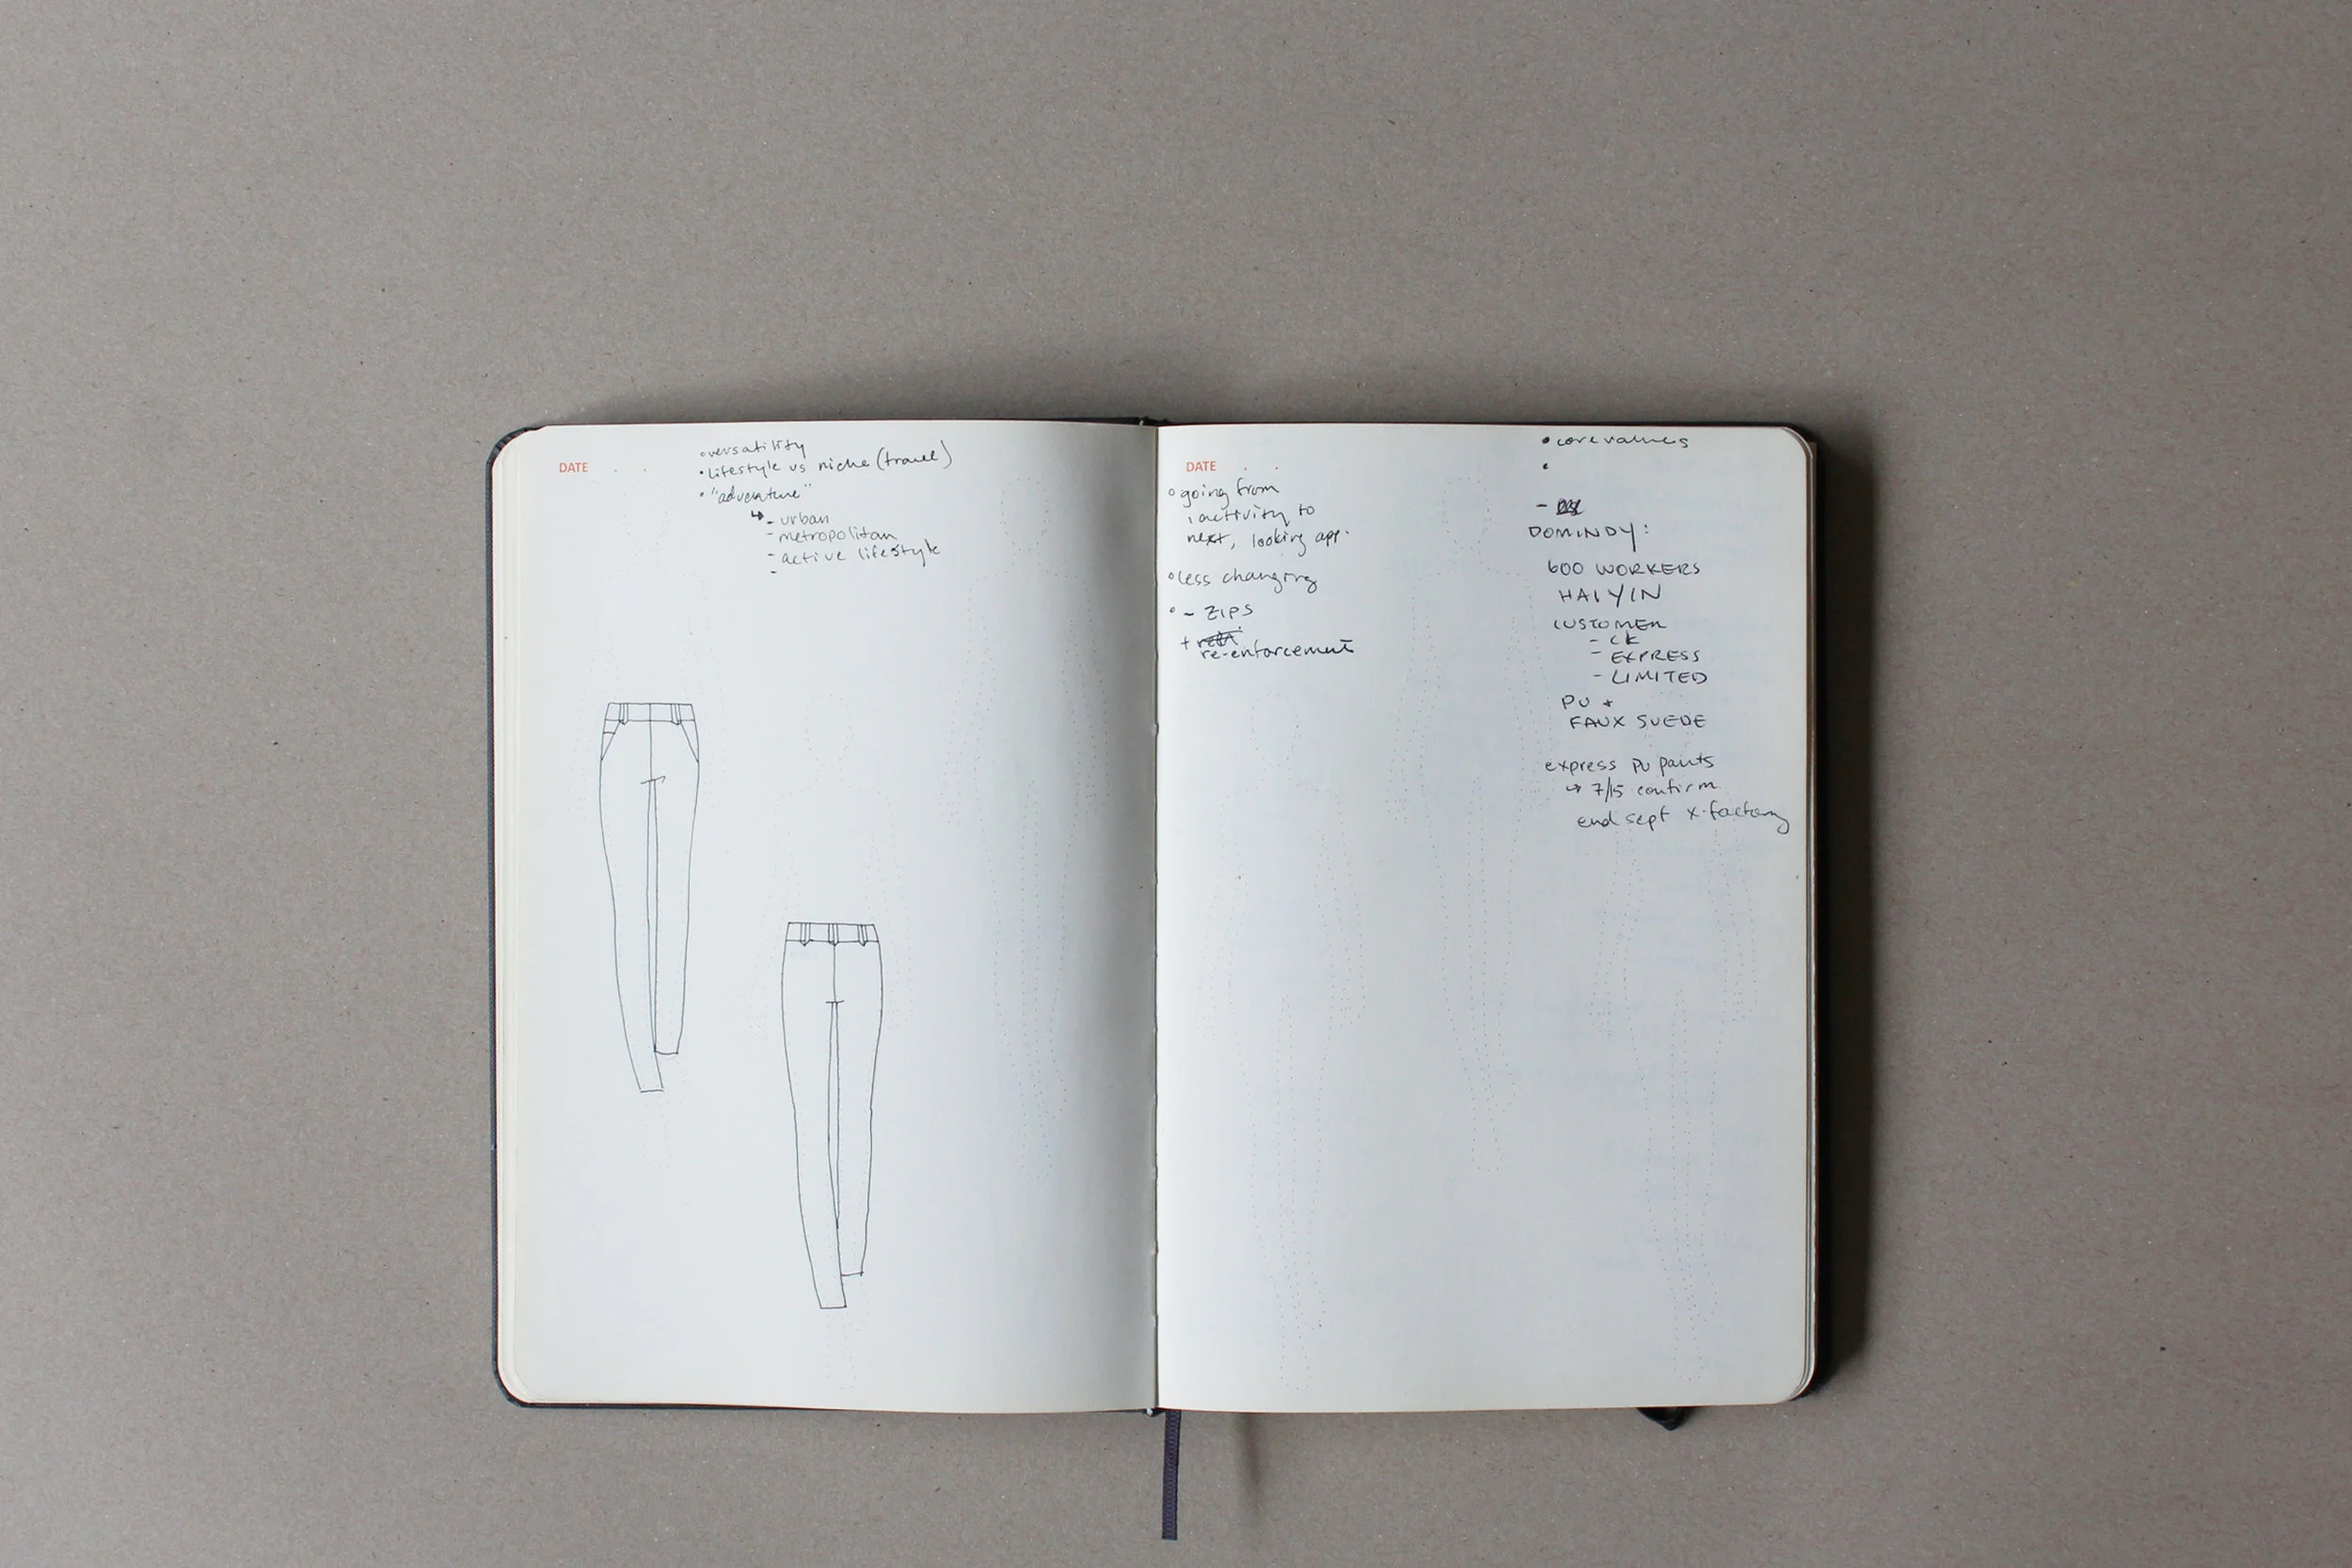 DATE
• versatility
• lifestyle vs niche (travel)
• "adventure"
↳ - urban
- metropolitan
- active lifestyle
-
DATE
• going from
1 activity to
next, looking app.
• less changing
• - ZIPS
+
re-enforcement
• core values
•
-
DOMINDY:
600 WORKERS
HAIYIN
CUSTOMER
- CK
- EXPRESS
- LIMITED
PU +
FAUX SUEDE
express PU pants
↳ 7/15 confirm
end sept x-factory